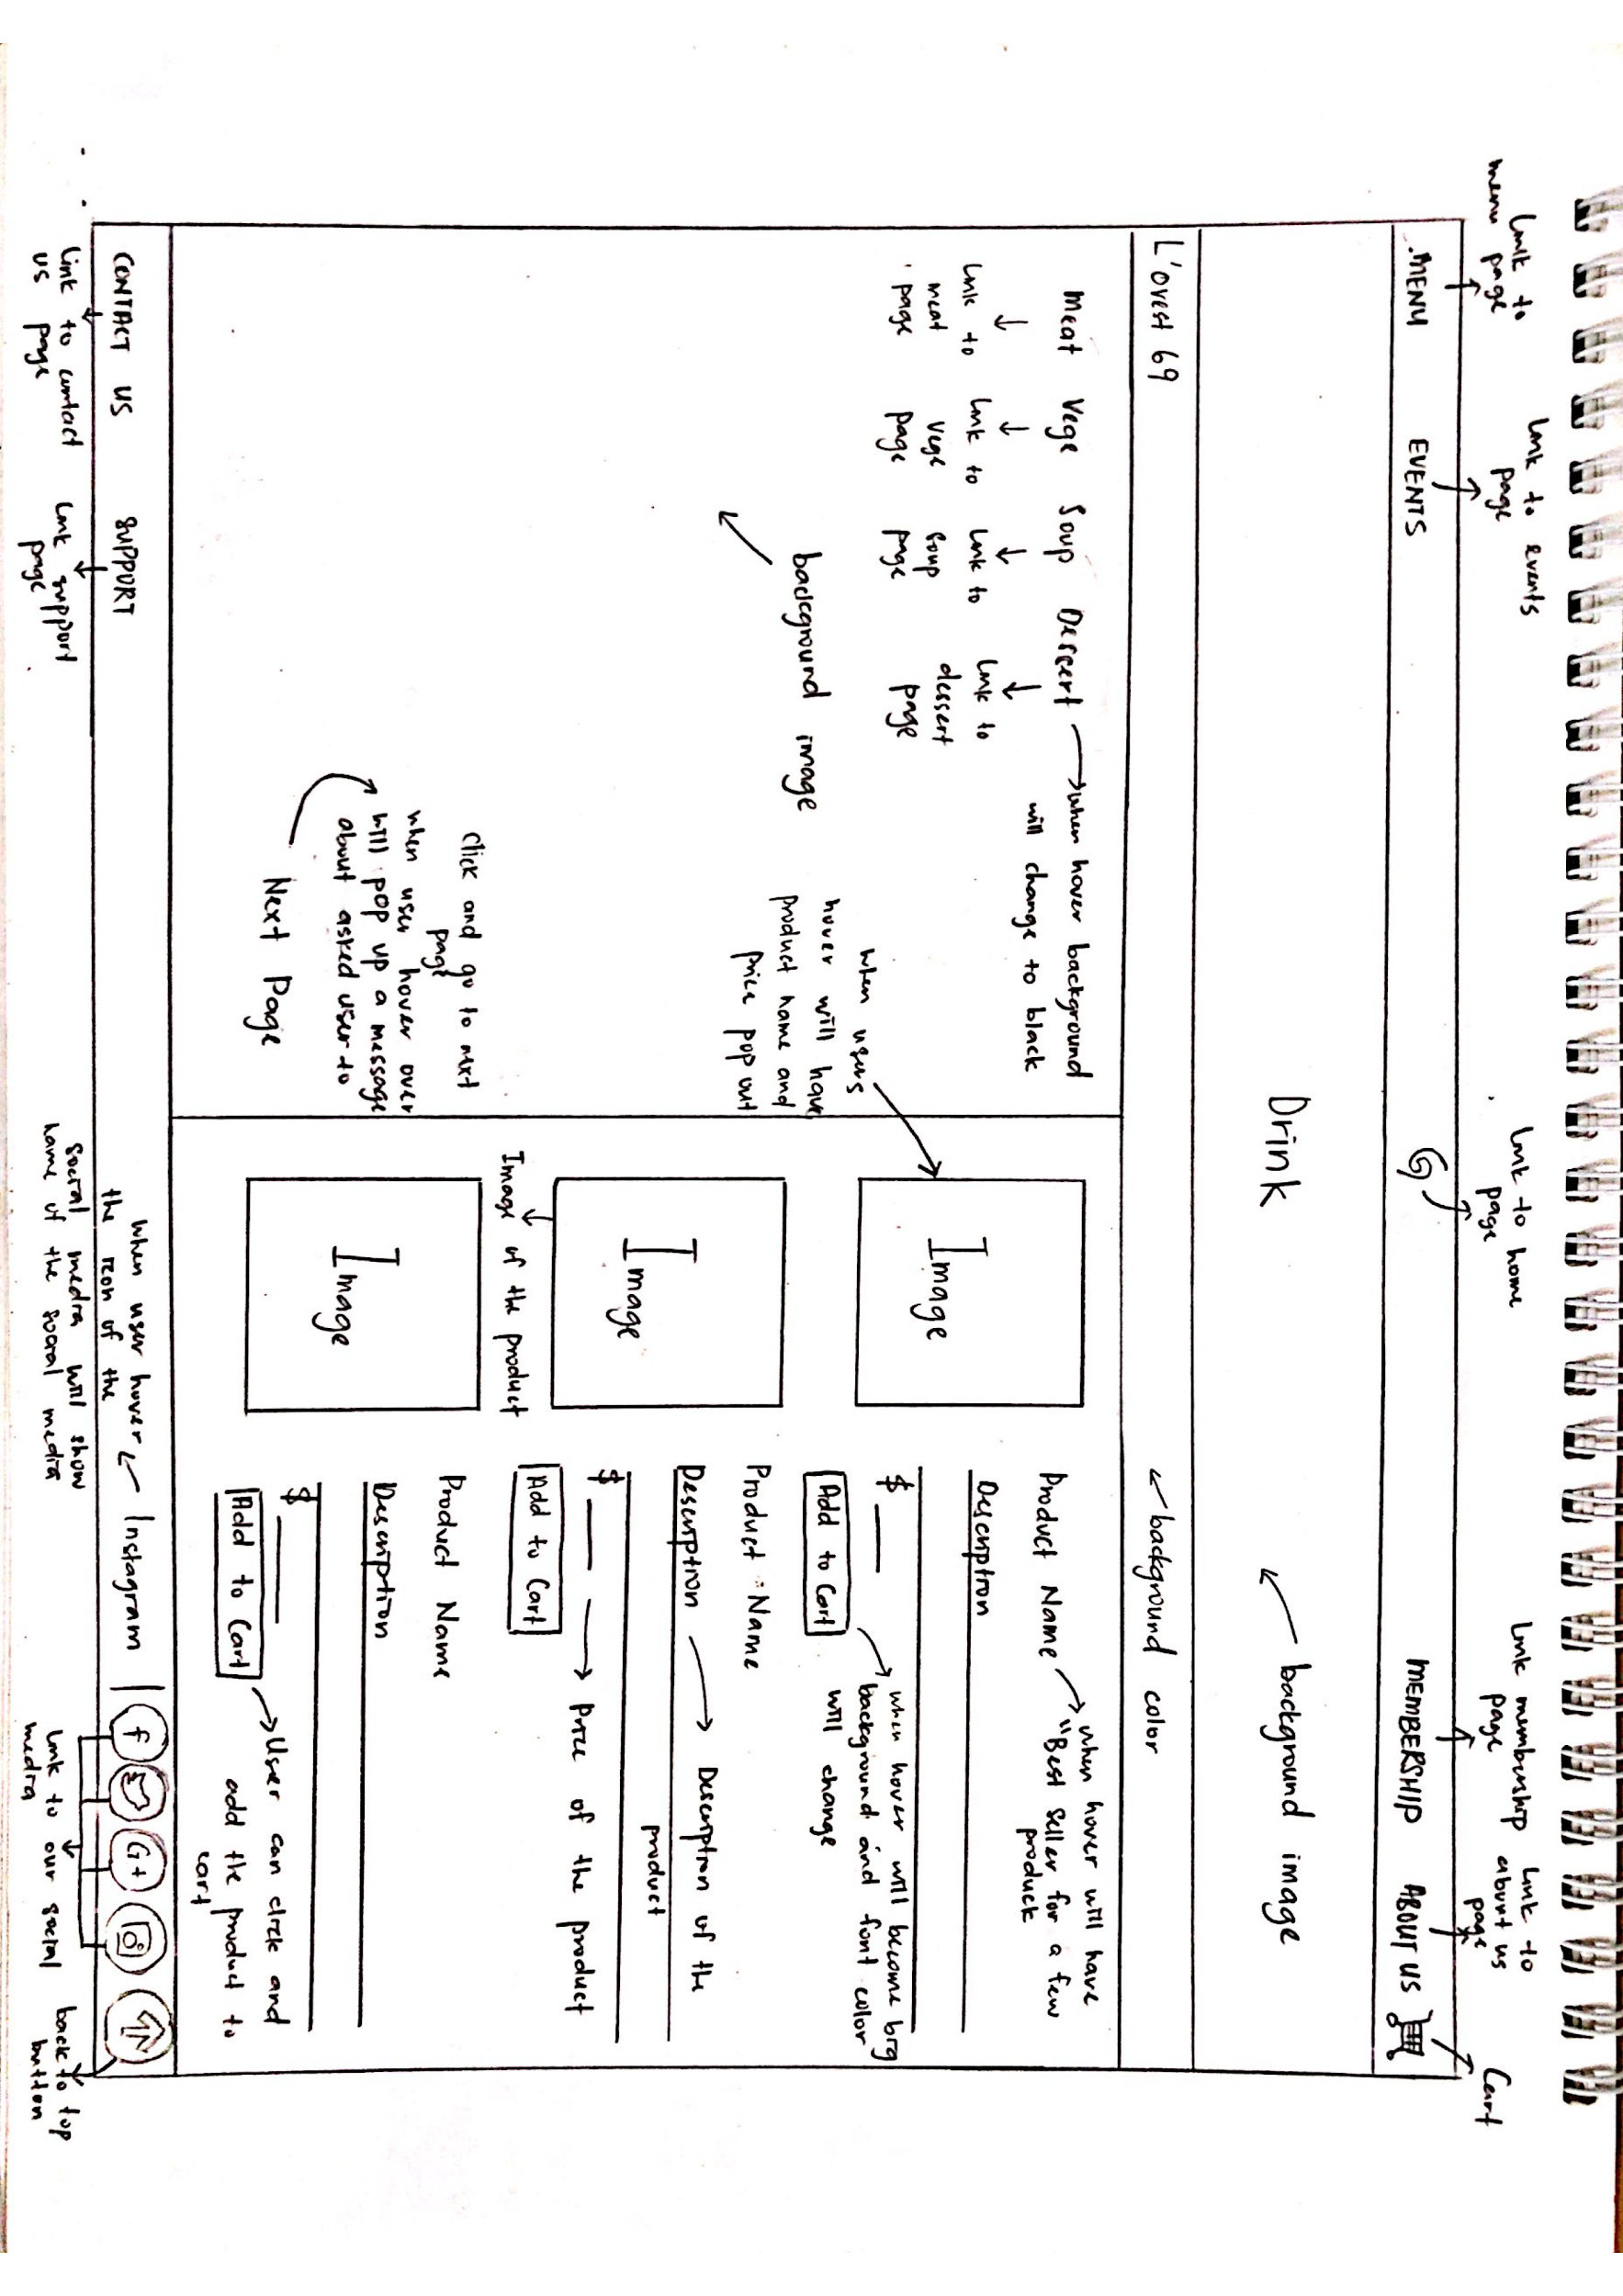 Link to
menu page
Link to events
page
Link to home
page
Link membership
page
Link to
about us
page
Cart
MENU
EVENTS
MEMBERSHIP
ABOUT US
Drink
background image
L'ovest 69
background color
Meat
Vege
Soup
Desert
when hover background
will change to black
Link to
meat
page
Link to
vege
page
Link to
soup
page
Link to
dessert
page
background image
when users
hover will have
product name and
price pop out
click and go to next
page
when user hover over
will pop up a message
about asked user to
Next Page
Image
Product Name
when hover will have
"Best seller for a few
product
Description
$
Add to Cart
when hover will become big
background and font color
will change
Image
Image of the product
Product Name
Description
Description of the
product
$
Price of the product
Add to Cart
Image
Product Name
Description
$
Add to Cart
User can click and
add the product to
cart
CONTACT US
SUPPORT
Instagram
f
G+
Link to contact
us page
Link support
page
when user hover
the icon of the
social media will show
name of the social media
Link to our social
media
back to top
button